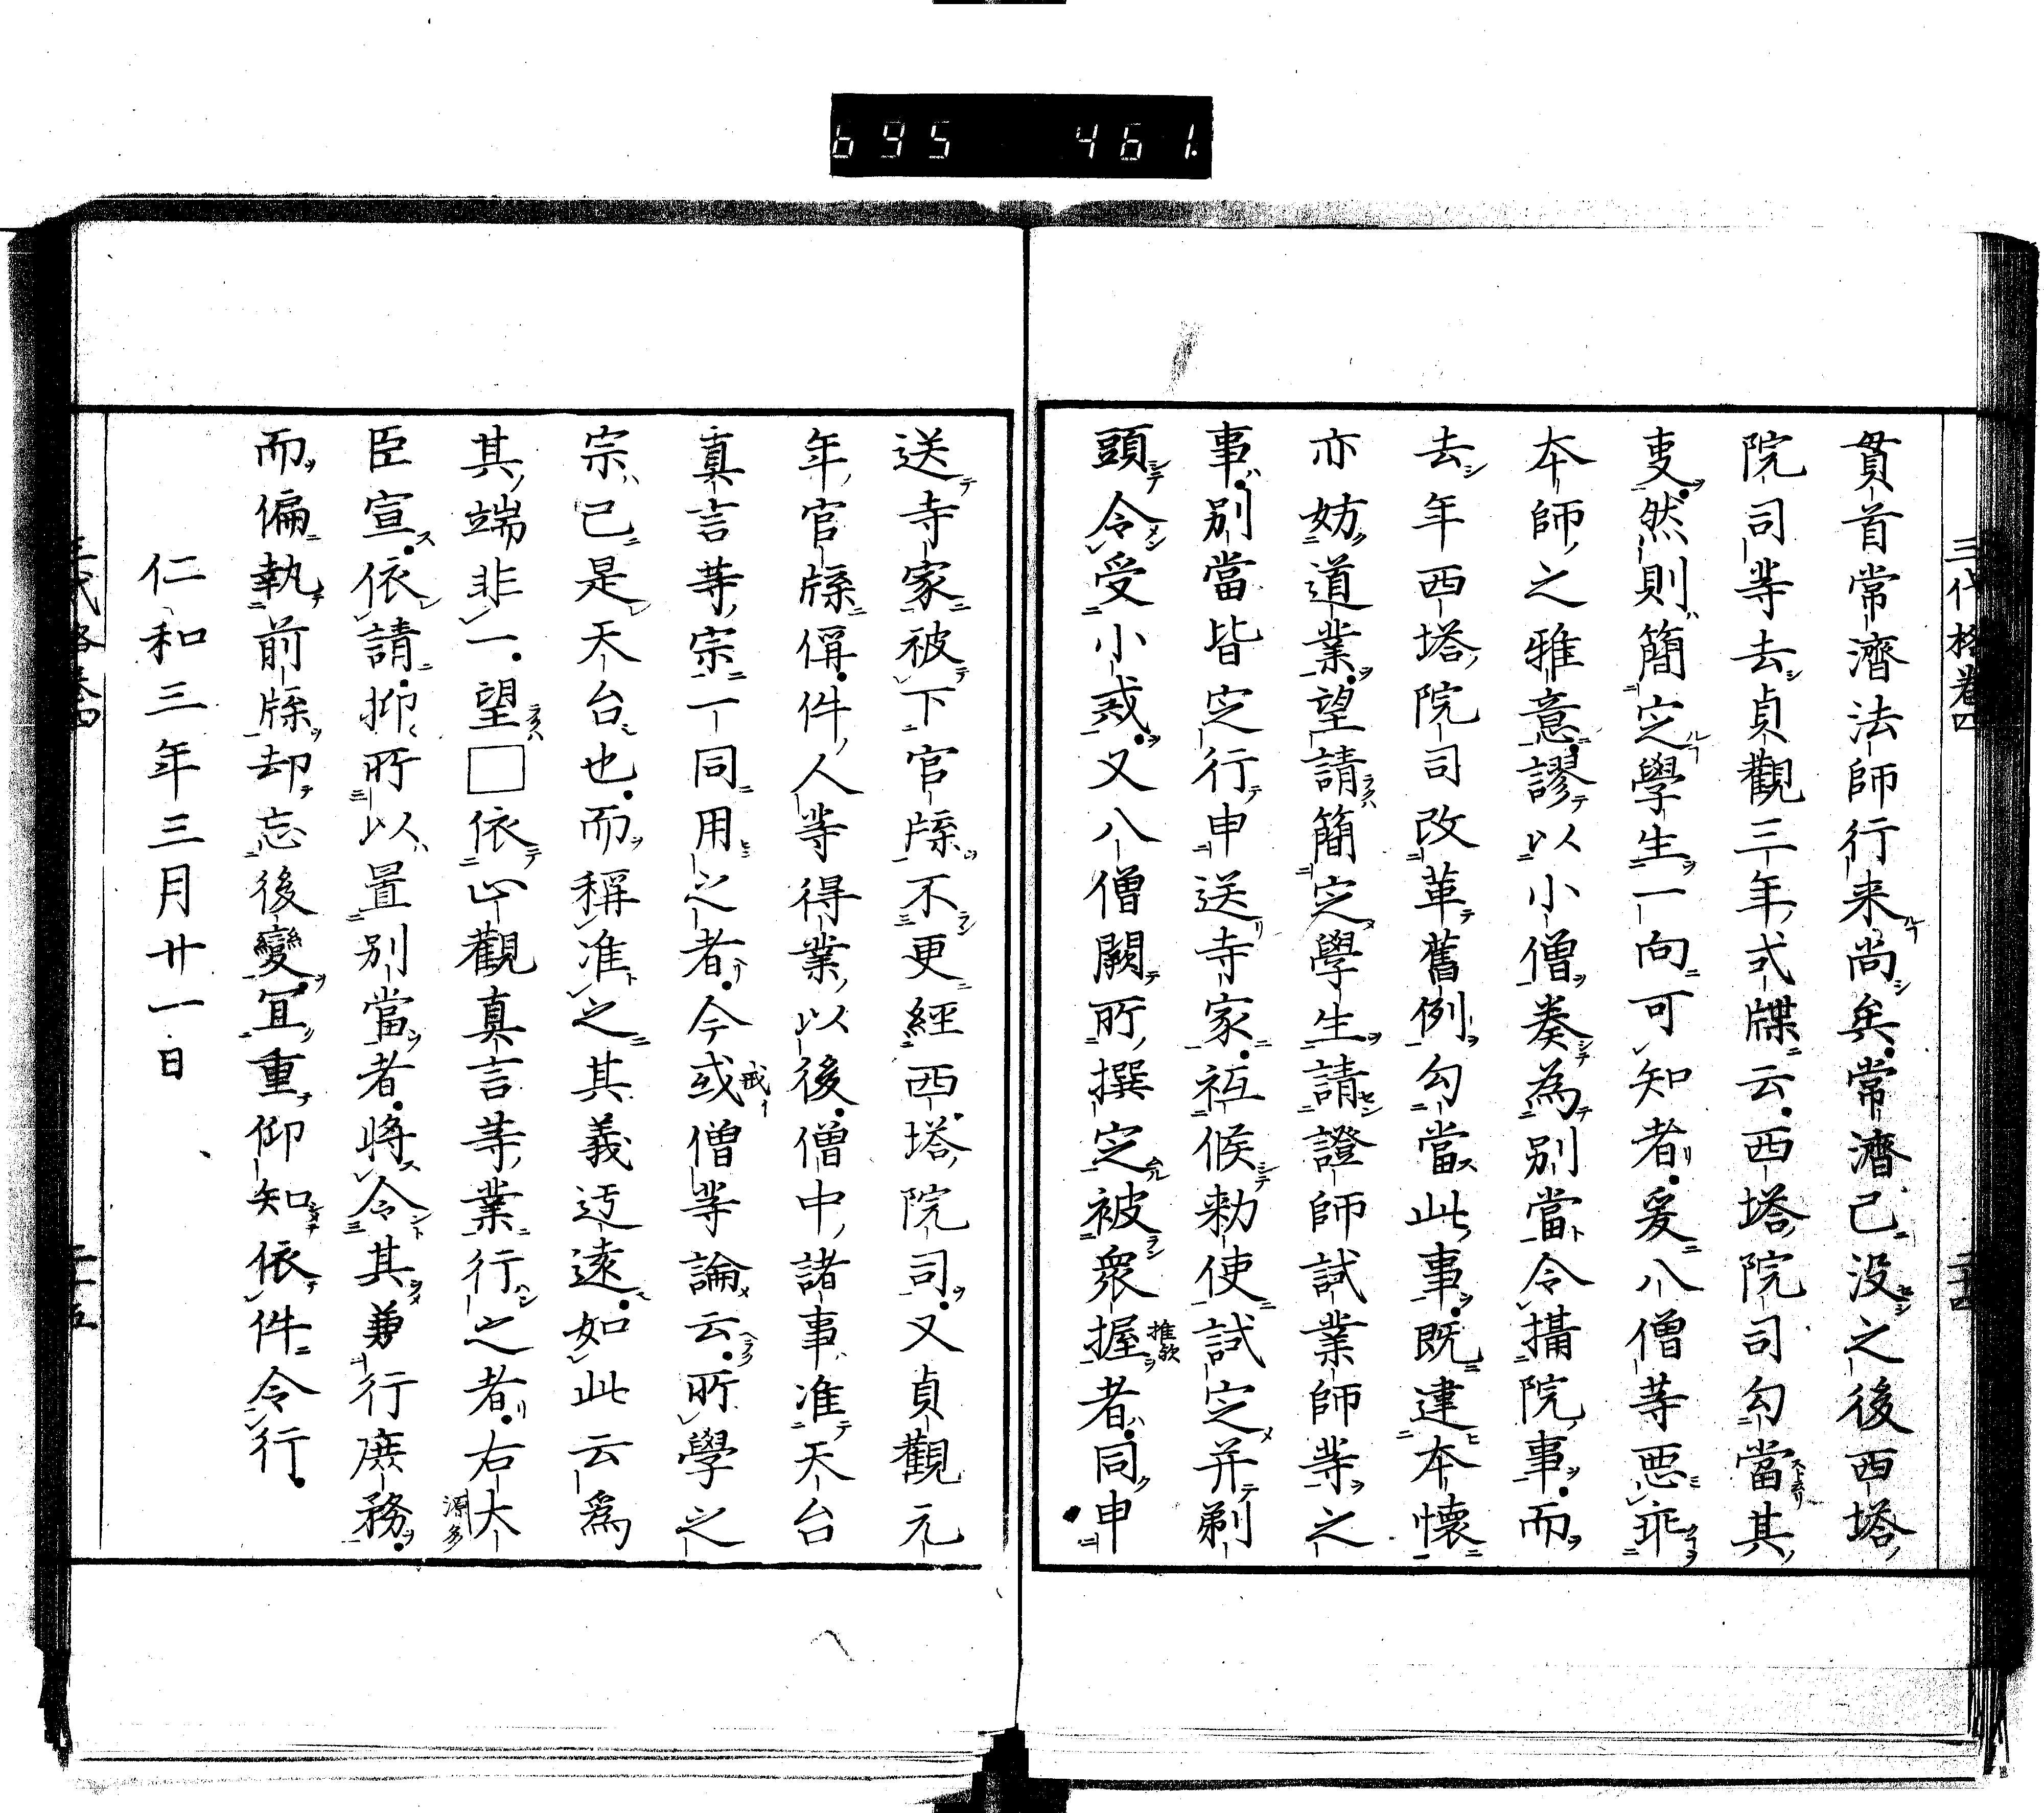 695 461.
三代格卷四
貫首常濟法師行来尚矣常濟已没之後西塔
院司等去貞觀三年弐牒云西塔院司勾當其
叓然則簡定學生一向可知者爰八僧等悪乖
本師之雅意謬以小僧奏為別當令攝院事而
去年西塔院司改革舊例勾當此事既違本懷
亦妨道業望請簡定學生請證師試業師等之
事別當皆定行申送寺家祗候勅使試定并剃
頭令受小戒又八僧闕所撰定被衆握者同申
推欤
送寺家被下官牒不更經西塔院司又貞觀元
年官牒偁件人等得業以後僧中諸事准天台
真言等宗一同用之者今或僧等論云所學之
戒イ
宗已是天台也而稱准之其義迂遠如此云為
其端非一望□依止觀真言等業行之者右大
源多
臣宣依請抑所以置別當者將令其兼行庶務
而偏執前牒却忘後變冝重仰知依件令行
仁和三年三月廿一日
三代格卷四
二十五